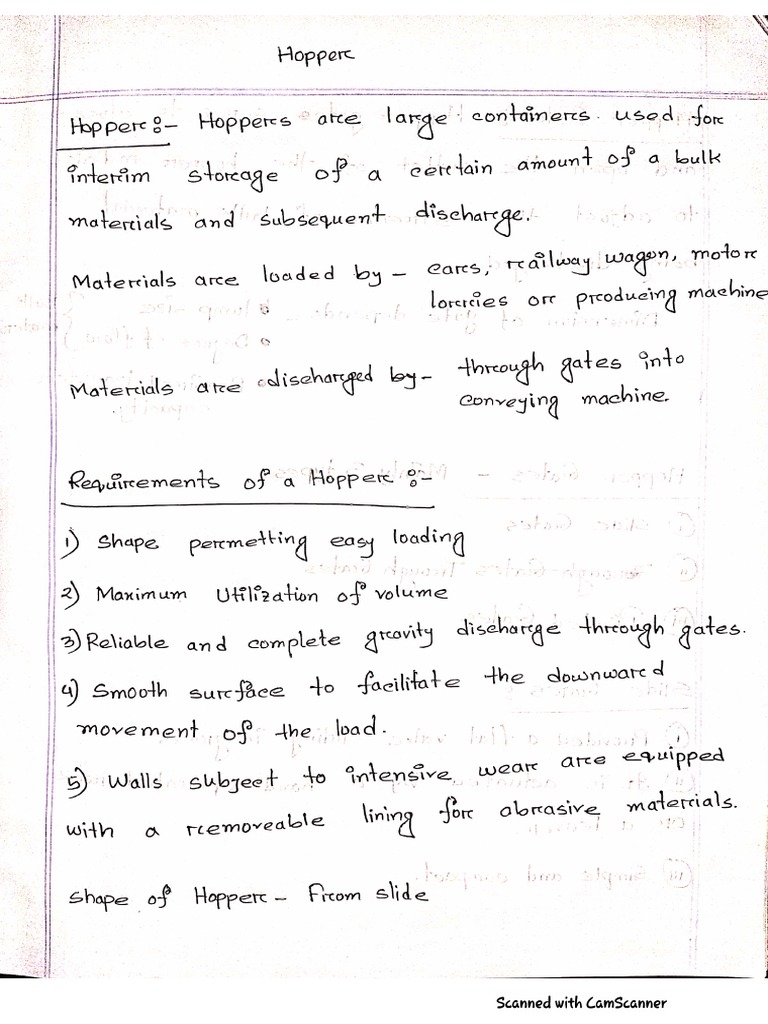 Hopper
Hopper :- Hoppers are large containers used for
interim storage of a certain amount of a bulk
materials and subsequent discharge.
Materials are loaded by - cars, railway wagon, motor
lorries or producing machine
Materials are discharged by - through gates into
conveying machine.
Requirements of a Hopper :-
1) Shape permetting easy loading
2) Maximum Utilization of volume
3) Reliable and complete gravity discharge through gates.
4) Smooth surface to facilitate the downward
movement of the load.
5) Walls subject to intensive wear are equipped
with a removeable lining for abrasive materials.
Shape of Hopper - From slide
Scanned with CamScanner